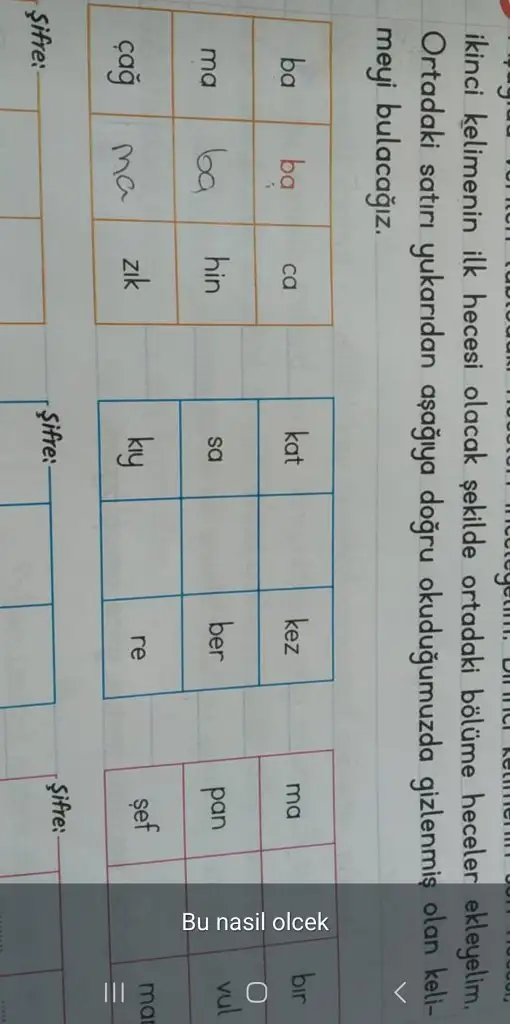 ikinci kelimenin ilk hecesi olacak şekilde ortadaki bölüme heceler ekleyelim.
Ortadaki satırı yukarıdan aşağıya doğru okuduğumuzda gizlenmiş olan keli-
meyi bulacağız.
ba ba ca
ma ba hin
çağ ma zık
Şifre:
kat kez
sa ber
kıy re
Şifre:
ma bir
pan vul
şef
Şifre:
Bu nasil olcek